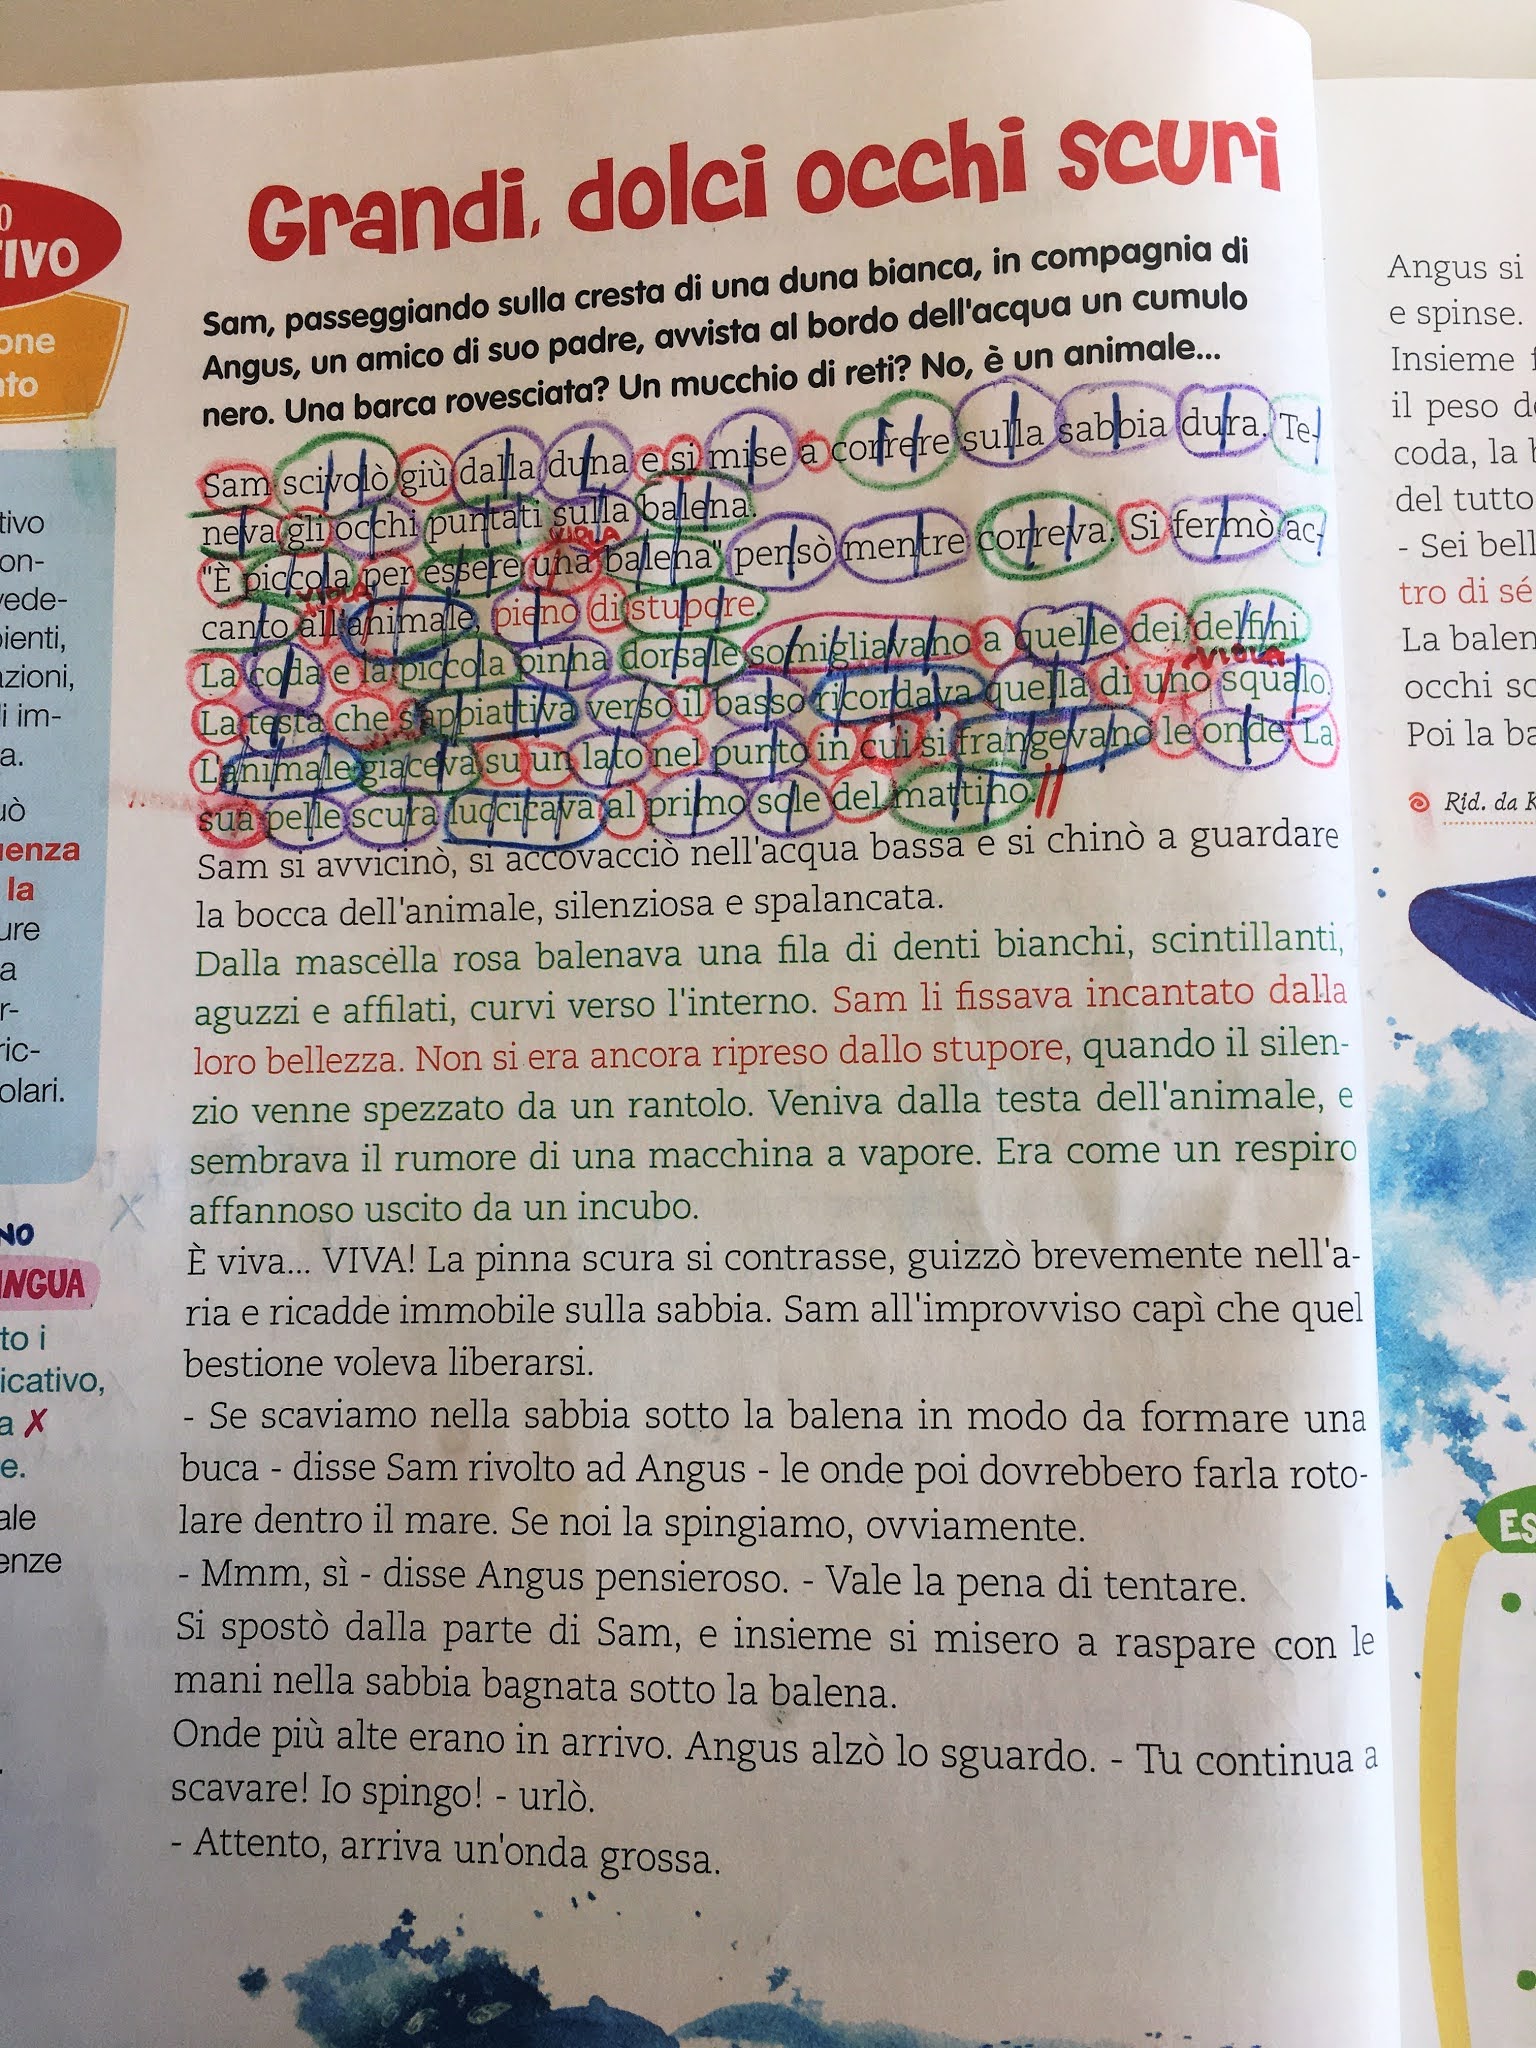 O
TIVO
one
nto
Grandi, dolci occhi scuri
Sam, passeggiando sulla cresta di una duna bianca, in compagnia di
Angus, un amico di suo padre, avvista al bordo dell'acqua un cumulo
nero. Una barca rovesciata? Un mucchio di reti? No, è un animale...
Sam scivolò giù dalla duna e si mise a correre sulla sabbia dura. Te-
neva gli occhi puntati sulla balena.
VIOLA
"È piccola per essere una balena" pensò mentre correva. Si fermò ac-
VIOLA
canto all'animale, pieno di stupore.
La coda e la piccola pinna dorsale somigliavano a quelle dei delfini.
VIOLA
La testa che s'appiattiva verso il basso ricordava quella di uno squalo.
L'animale giaceva su un lato nel punto in cui si frangevano le onde. La
sua pelle scura luccicava al primo sole del mattino.
Sam si avvicinò, si accovacciò nell'acqua bassa e si chinò a guardare
la bocca dell'animale, silenziosa e spalancata.
Dalla mascella rosa balenava una fila di denti bianchi, scintillanti,
aguzzi e affilati, curvi verso l'interno. Sam li fissava incantato dalla
loro bellezza. Non si era ancora ripreso dallo stupore, quando il silen-
zio venne spezzato da un rantolo. Veniva dalla testa dell'animale, e
sembrava il rumore di una macchina a vapore. Era come un respiro
affannoso uscito da un incubo.
È viva... VIVA! La pinna scura si contrasse, guizzò brevemente nell'a-
ria e ricadde immobile sulla sabbia. Sam all'improvviso capì che quel
bestione voleva liberarsi.
- Se scaviamo nella sabbia sotto la balena in modo da formare una
buca - disse Sam rivolto ad Angus - le onde poi dovrebbero farla roto-
lare dentro il mare. Se noi la spingiamo, ovviamente.
- Mmm, sì - disse Angus pensieroso. - Vale la pena di tentare.
Si spostò dalla parte di Sam, e insieme si misero a raspare con le
mani nella sabbia bagnata sotto la balena.
Onde più alte erano in arrivo. Angus alzò lo sguardo. - Tu continua a
scavare! Io spingo! - urlò.
- Attento, arriva un'onda grossa.
tivo
on-
vede-
pienti,
azioni,
di im-
a.
uò
uenza
la
ure
a
r-
ric-
olari.
NO
INGUA
to i
icativo,
a X
e.
ale
enze
Angus si
e spinse.
Insieme
il peso de
coda, la b
del tutto
- Sei bell
tro di sé
La balen
occhi sc
Poi la ba
Rid. da K
Es